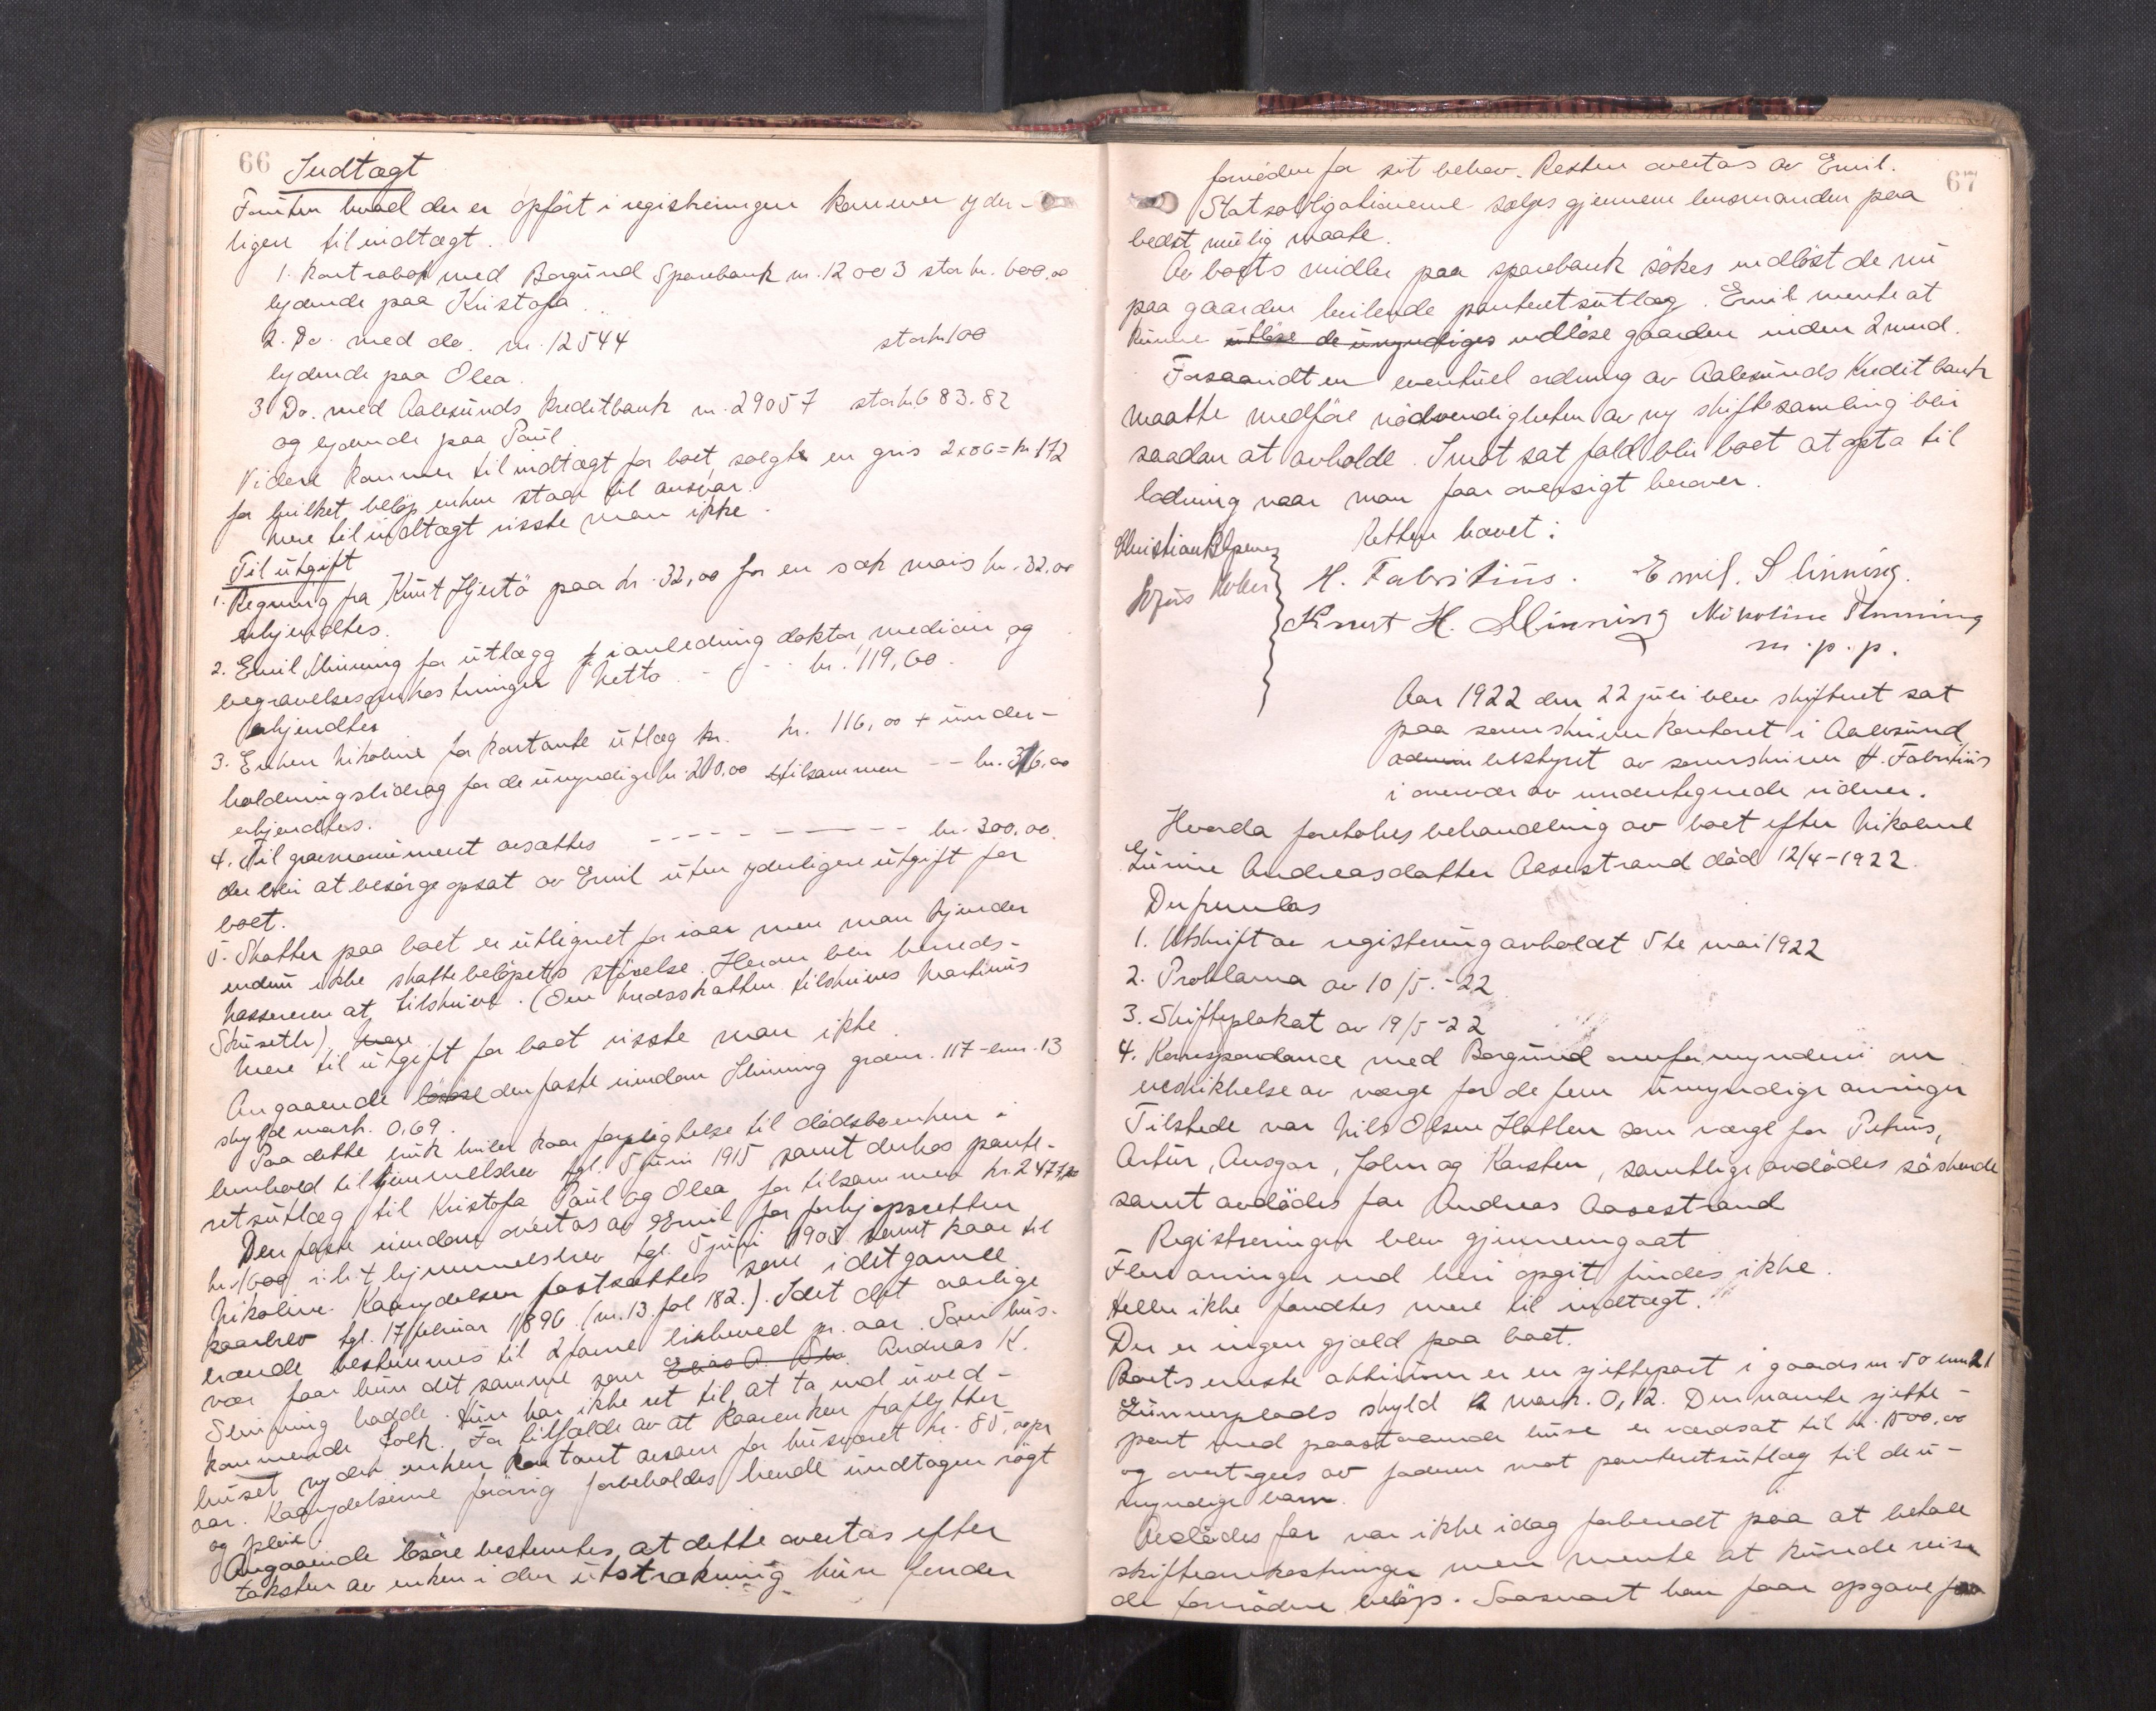 66
Indtægt
Foruten hvad der er opfört i registreringen kommer yder-
ligere til indtægt.
1. Kontrabok med Borgund Sparebank nr. 12003 stor kr. 600,00
lydende paa Kristofa
2. Do. med do. nr. 12544 stor kr 100
lydende paa Olea.
3 Do. med Aalesunds Kreditbank nr. 29057 stor kr 683.82
og lydende paa Paul
Videre kommer til indtægt for boet, solgte en gris 2x86=kr 172
for hvilket belöp enken staar til ansvar.
Mere til indtægt visste man ikke.
Til utgift
1. Regning fra Knut Hjertö paa kr. 32,00 for en sæk mais kr. 32.00
erkjendtes.
2. Emil Slinning for utlægg i anledning doktor, medicin og
begravelsesomkostninger Netto - - - kr. 119,60.
erkjendtes
3. Enken Nikoline for kontante utlæg kr. kr. 116,00 + under-
holdningsbidrag for de umyndige kr. 200,00 tilsammen -- kr. 316.00
erkjendtes.
4. Til gravmonument avsættes - - - - - - - kr. 300,00.
der blir at besörge opsat av Emil uten yderligere utgift for
boet.
5. Skatter paa boet er utlignet for iaar men man kjender
endnu ikke skattebelöpets störelse. Herom blir herreds-
kassereren at tilskrive. (Om kredsskatten tilskrives Martinus
Skuseth), Mere
Mere til utgift for boet visste man ikke.
Angaaende lösöre den faste eiendom Slinning gnr. 117 - bnr. 13
skyld mark. 0,69.
Paa dette bruk hviler kaarforpligtelse til dödsboenken i
henhold til hjemmelsbrev tgl. 5 juni 1915 samt derhos pante-
retsutlæg til Kristofa Paul og Olea for tilsammen kr. 2477,20
Den faste eiendom overtas av Emil for forkjöpsretten
kr. 1600 i h. t. hjemmelsbrev tgl. 5 juni 1905 samt kaar til
Nikoline. Kaarydelsen fastsættes som i det gamle
kaarbrev tgl. 17 februar 1896 (nr. 13. fol 182.). Idet det aarlige
brænde bestemmes til 2 favne birkeved pr. aar. Som hus-
vær faar hun det samme som Andreas K.
Slinning hadde. Hun har ikke ret til at ta ind uved-
kommende folk. For tilfælde av at kaarenken fraflytter
huset yder enken kontant avsavn for husværet kr. 85,00 pr
aar. Kaarydelserne forövrig forbeholdes hende undtagen rögt
og pleie.
Angaaende lösöre bestemtes, at dette overtas efter
taksten av enken i den utstrækning hun finder
67
fornöden for sit behov. Resten overtas av Emil.
Statsobligationerne sælges gjennem lensmanden paa
bedst mulig maate.
Av boets midler paa sparebank sökes indlöst de nu
paa gaarden hvilende panteretsutlæg. Emil mente at
kunne utlöse de umyndiges indlöse gaarden inden 2 mnd.
Forsaavidt en eventuel ordning av Aalesunds Kreditbank
maatte medföre nödvendigheten av ny skiftesamling blir
saadan at avholde. I motsat fald blir boet at opta til
lodning naar man faar oversigt herover.
Retten hævet:
H. Fabritius. Emil. Slinning.
Knut H. Slinning Nikoline Slinning
m.p.p.
Aar 1922 den 22 juli blev skifteret sat
paa sorenskriverkontoret i Aalesund
admin bestyret av sorenskriver H. Fabritius
i overvær av undertegnede vidner.
Hvorda foretokes behandling av boet efter Nikoline
Gurine Andreasdatter Aasestrand död 12/4-1922.
Der fremlas
1. Utskrift av registrering avholdt 5te mai 1922
2. Proklama av 10/5.-22
3. Skifteplakat av 19/5-22
4. Korrespondance med Borgund overformynderi om
beskikkelse av værge for de fem umyndige arvinger
Tilstede var Nils Olsen Hatlen som værge for Petrus,
Artur, Ansgar, John og Karsten, samtlige avdödes söskende
samt avdödes far Andreas Aasestrand
Registreringen blev gjennemgaat
Flere arvinger end heri opgit findes ikke.
Heller ikke fandtes mere til indtægt.
Der er ingen gjæld paa boet.
Boets eneste aktivum er en sjettepart i gaards nr. 50 bnr 21
skyld mark. 0,12. Den nævnte sjette-
part med paastaaende huse er verdsat til kr. 1500,00
og overtages av faderen mot panteretsutlæg til de u-
myndige barn.
Avdödes far var ikke idag forberedt paa at betale
skifteomkostninger men mente at kunde reise
de fornödne belöp. Saasnart han faar opgave